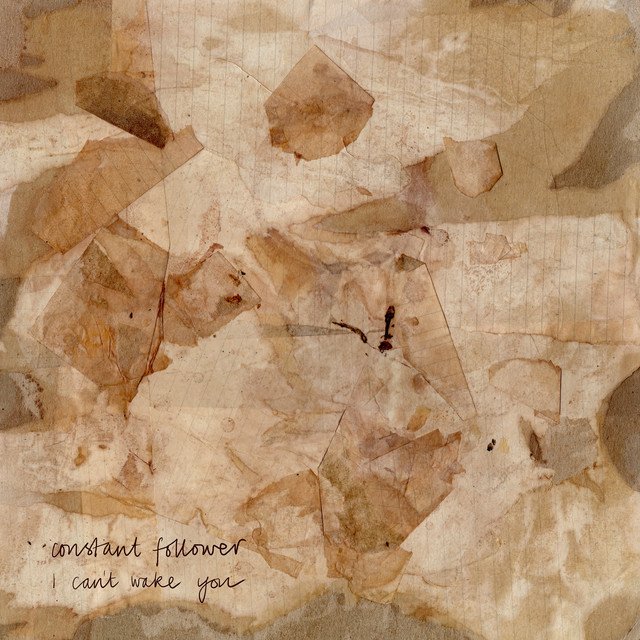 constant follower
I can't wake you